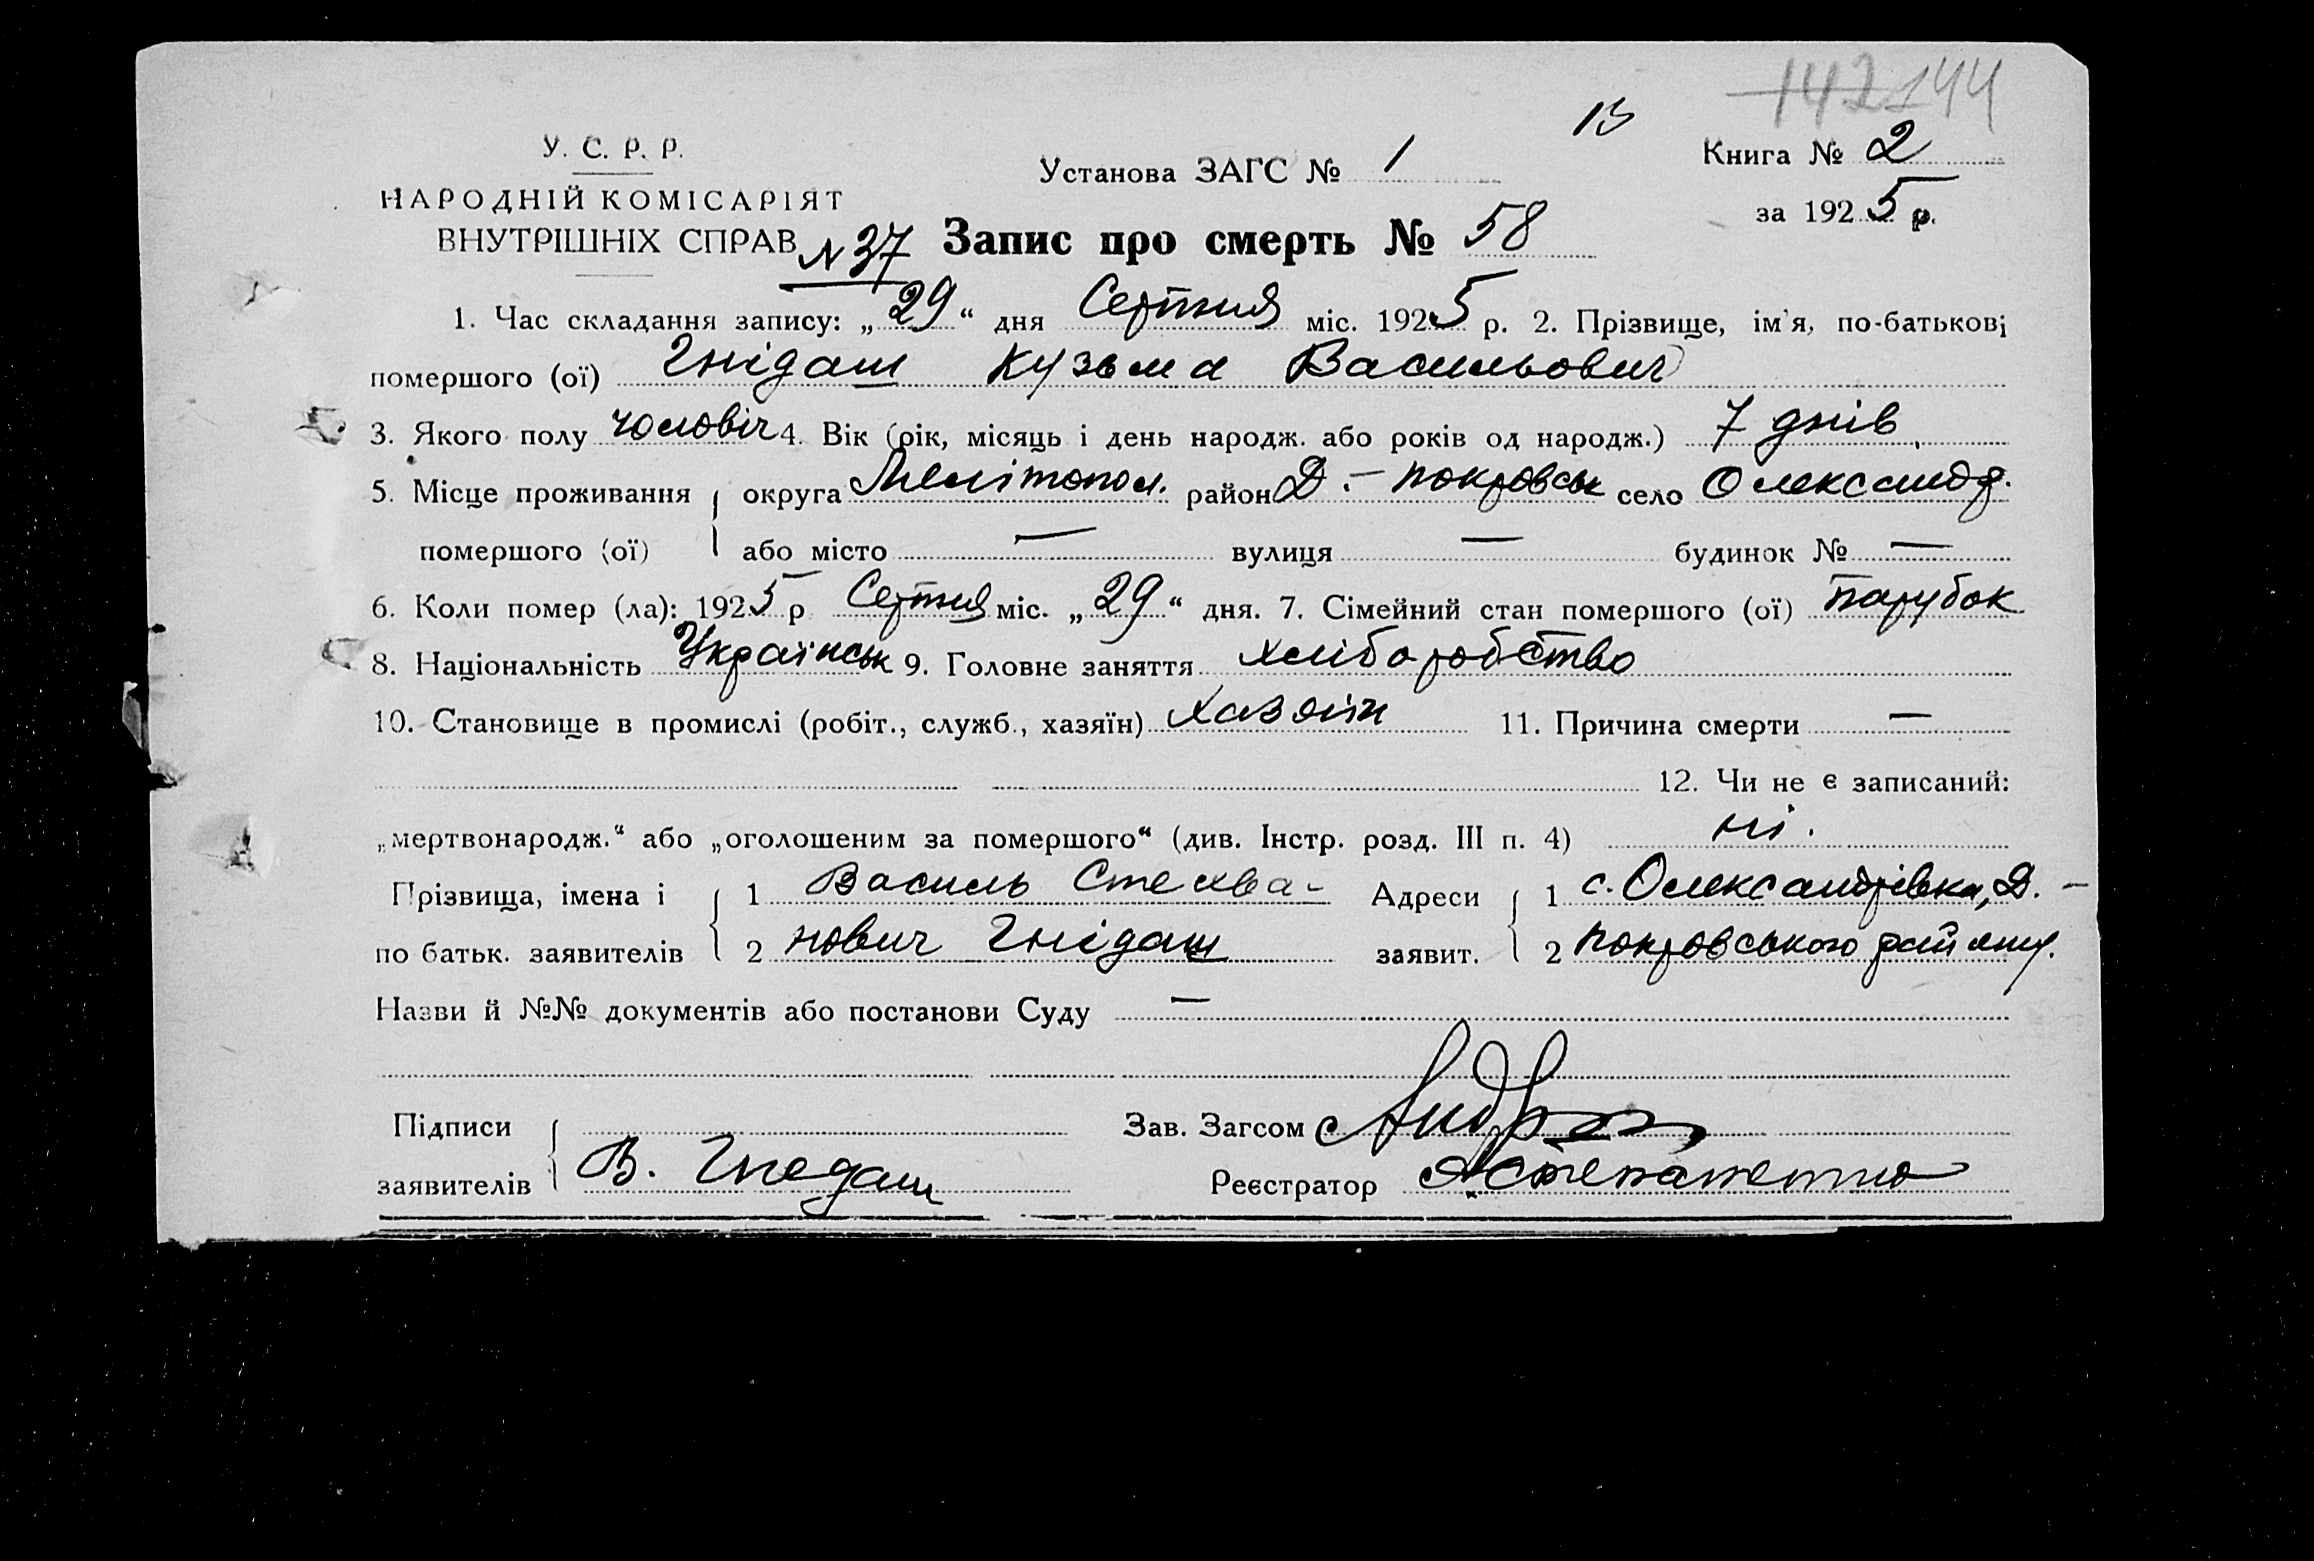 142 144
13
У. С. Р. Р.
Установа ЗАГС № 1
Книга № 2
НАРОДНІЙ КОМІСАРІЯТ
за 1925 р.
ВНУТРІШНІХ СПРАВ N 37 Запис про смерть № 58
1. Час складання запису: „29“ дня Серпня міс. 1925 р. 2. Прізвище, ім'я, по-батькові
помершого (ої) Гнідаш Кузьма Васильович
3. Якого полу чоловіч 4. Вік (рік, місяць і день народж. або років од народж.) 7 днів
5. Місце проживання округа Мелітопол. район Д.-Покровськ село Олександр.
помершого (ої) або місто — вулиця — будинок № —
6. Коли помер (ла): 1925 р Серпня міс. „29“ дня. 7. Сімейний стан помершого (ої) парубок
8. Національність Українськ 9. Головне заняття хліборобство
10. Становище в промислі (робіт., служб., хазяїн) хазяїн 11. Причина смерти —
12. Чи не є записаний:
„мертвонародж.“ або „оголошеним за помершого“ (див. Інстр. розд. III п. 4) ні.
Прізвища, імена і 1 Василь Степа- Адреси 1 с. Олександрівка, Д.-
по батьк. заявителів 2 нович Гнідаш заявит. 2 Покровського району.
Назви й №№ документів або постанови Суду —
Підписи Зав. Загсом
заявителів В. Гнедаш Реєстратор